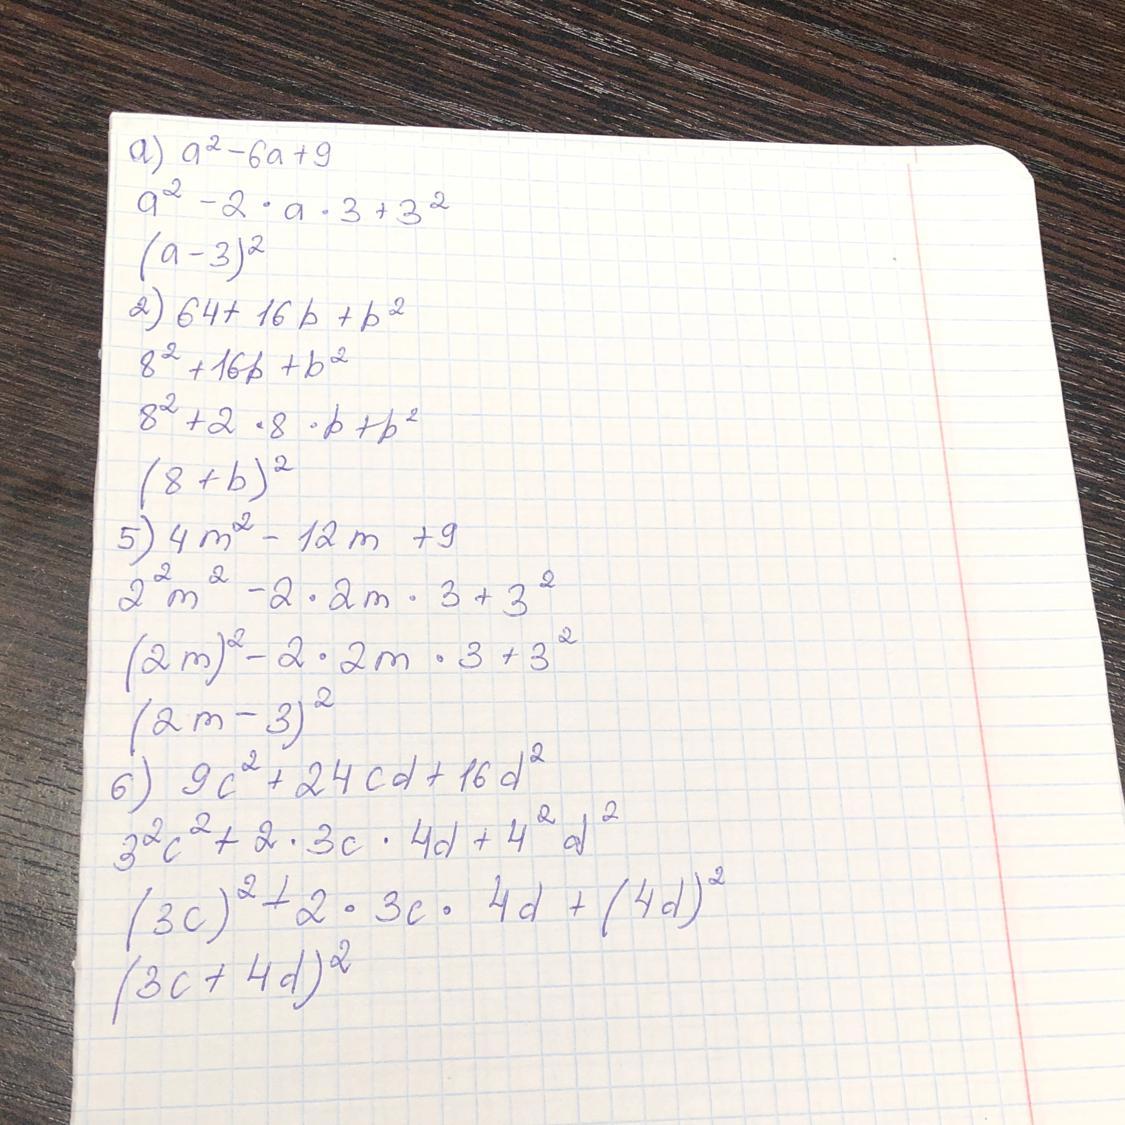 а) a² - 6a + 9
a² - 2 · a · 3 + 3²
(a - 3)²
2) 64 + 16b + b²
8² + 16b + b²
8² + 2 · 8 · b + b²
(8 + b)²
5) 4m² - 12m + 9
2²m² - 2 · 2m · 3 + 3²
(2m)² - 2 · 2m · 3 + 3²
(2m - 3)²
6) 9c² + 24cd + 16d²
3²c² + 2 · 3c · 4d + 4²d²
(3c)² + 2 · 3c · 4d + (4d)²
(3c + 4d)²